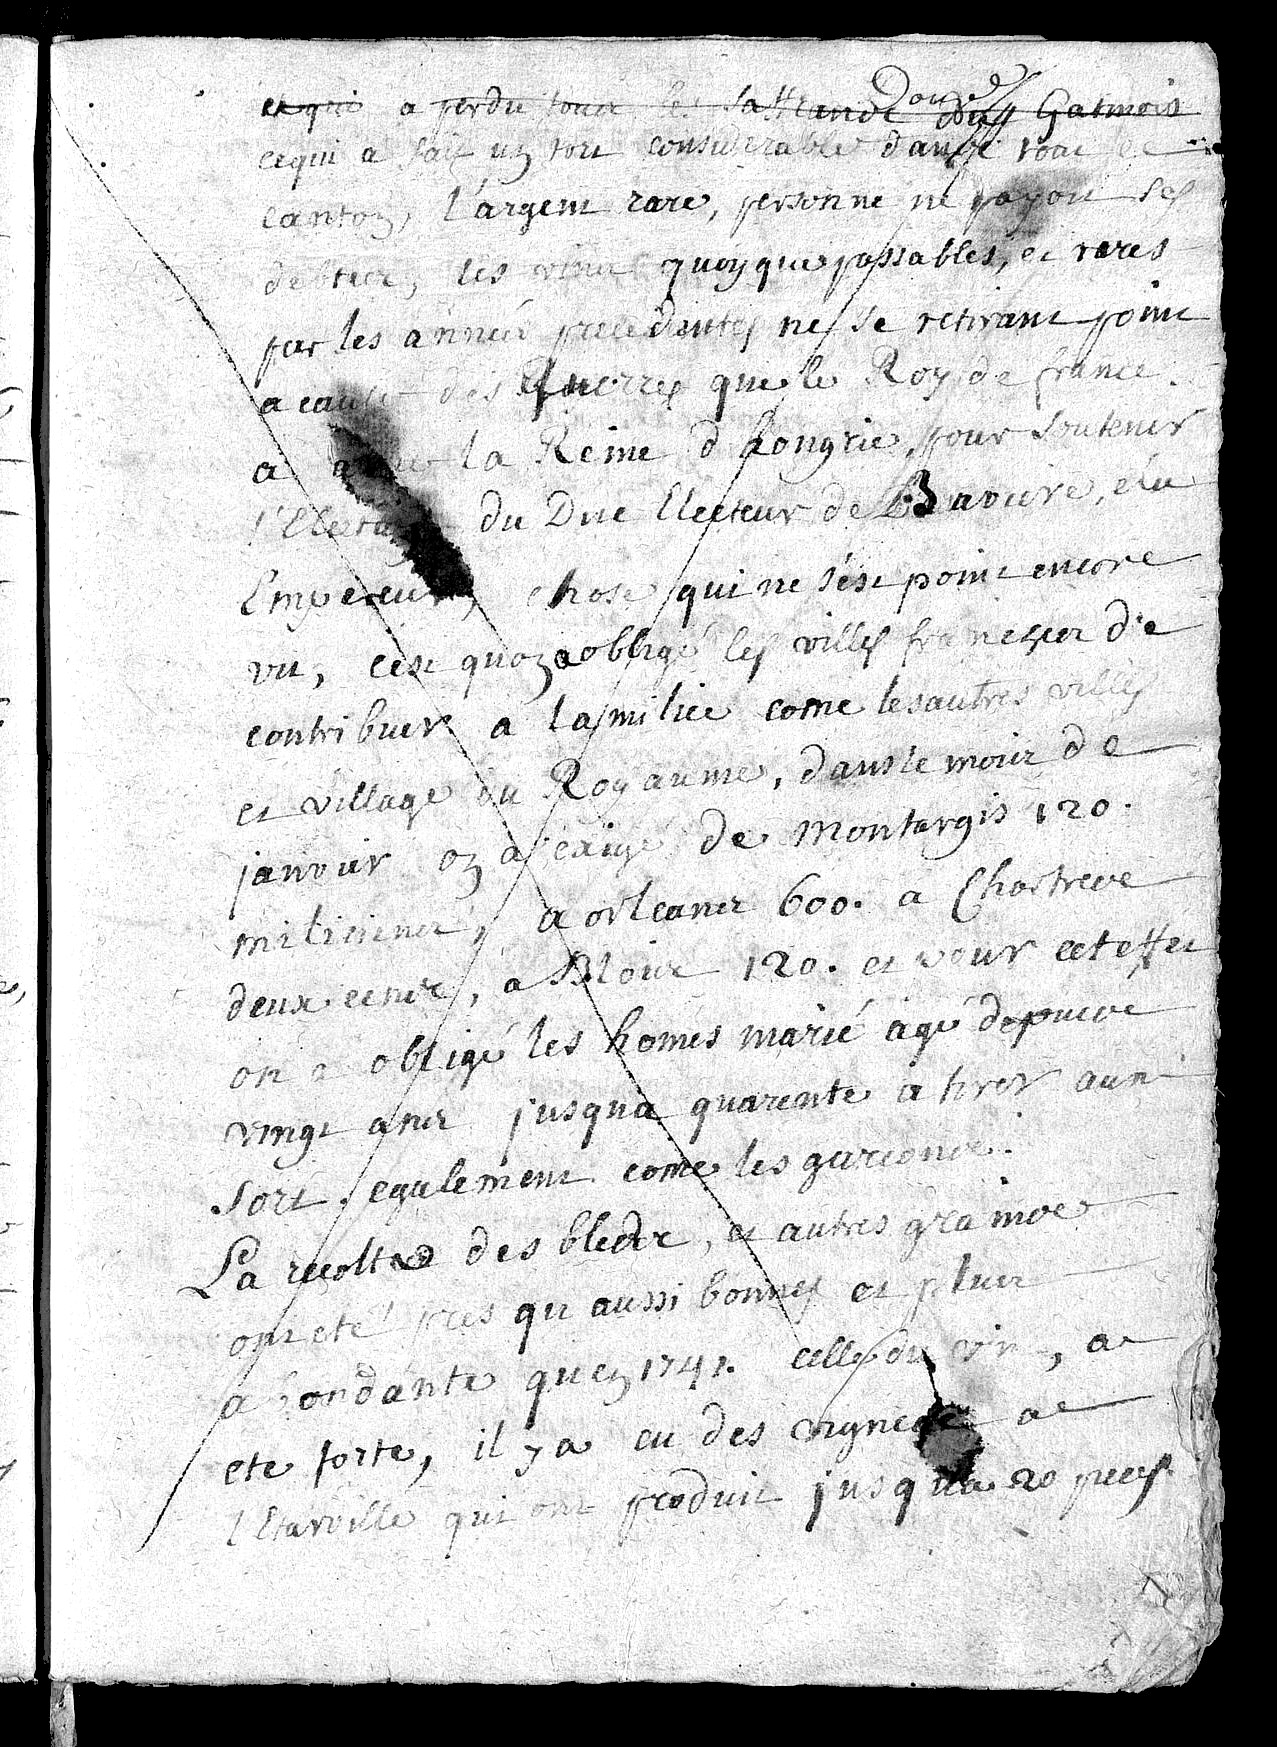 et qui a perdu tout les saffrans du Gatinois
ce qui a fait un tort considerable dans tout le
canton, l'argent rare, personne ne payoit ses
dettes, les vins quoyque passables, et rares
par les années precedantes ne se retirant point
a cause des guerres que le Roy de france
a avec la Reine d hongrie, pour soutenir
l'Election du Duc Electeur de Baviere, elu
Empereur, chose qui ne s'est point encore
vu, c'est quon a obligé les villes franches de
contribuer a la milice come les autres villes
et village du Royaume, dans le mois de
janvier on a exigé de Montargis 120.
miliciens, a orleans 600. a Chartres
deux cents, a Blois 120. et pour cet effet
on a obligé les homes marié agé depuis
vingt ans jusqua quarente a tirer au
sort egalement come les garcons.
La recolte des bleds, et autres grains
ont eté pres qu aussi bonnes et plus
abondante quen 1741. celle du vin, a
ete forte, il y a eu des vignes a
l Etarville qui ont produit jusqua 20 pieces